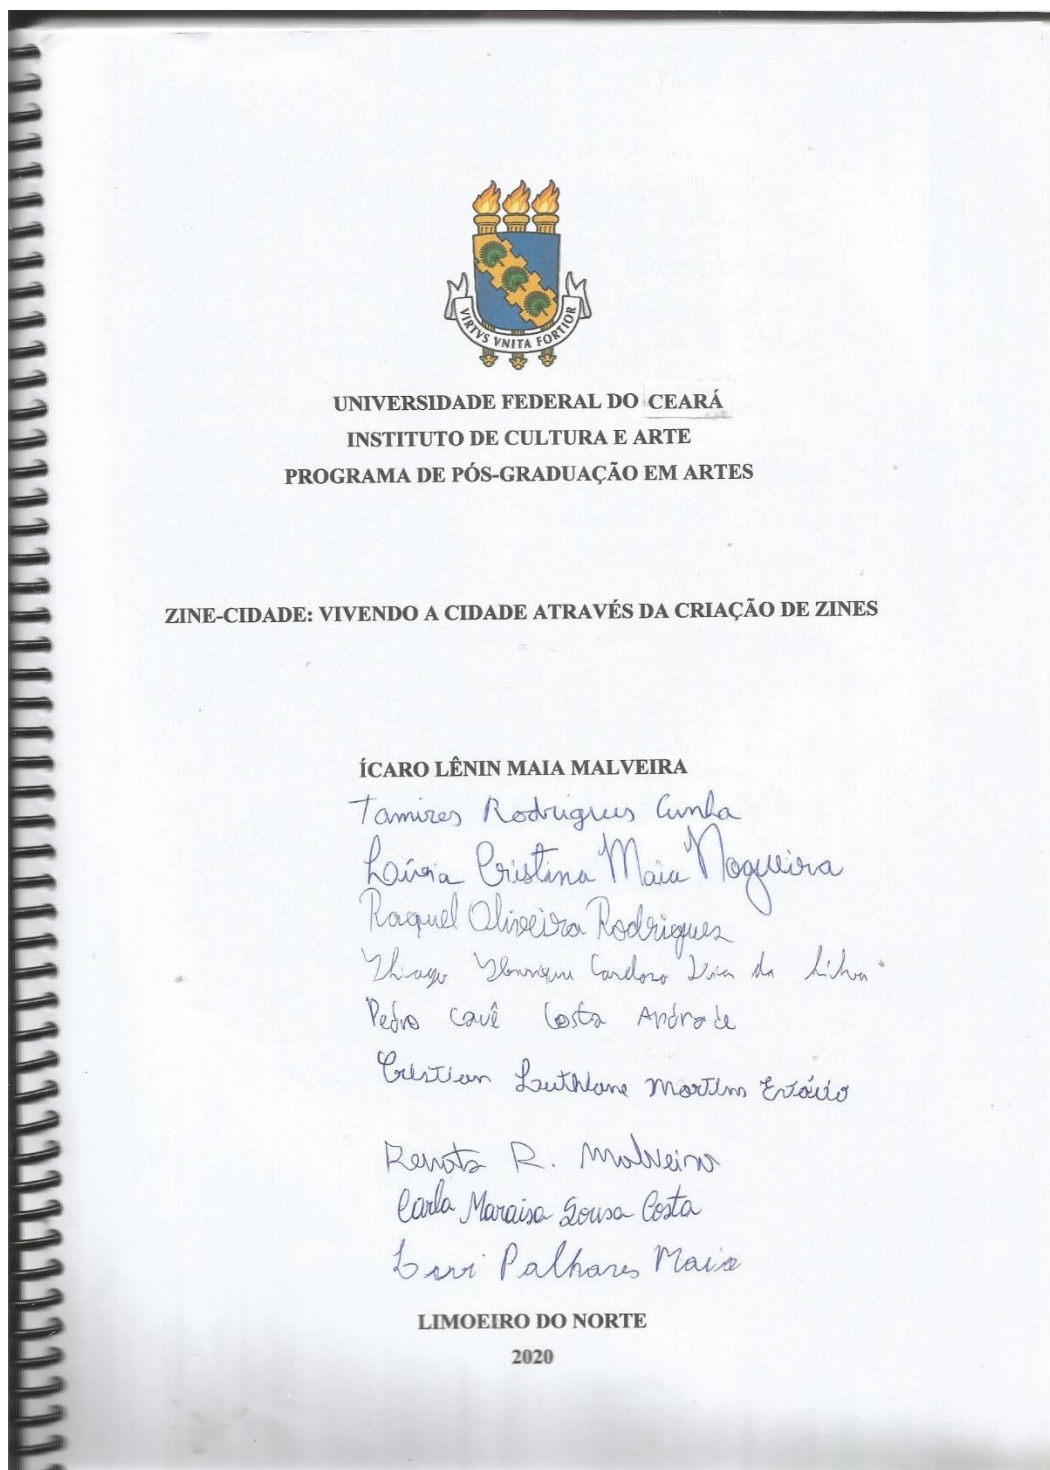 VIRTVS VNITA FORTIOR
UNIVERSIDADE FEDERAL DO CEARÁ
INSTITUTO DE CULTURA E ARTE
PROGRAMA DE PÓS-GRADUAÇÃO EM ARTES
ZINE-CIDADE: VIVENDO A CIDADE ATRAVÉS DA CRIAÇÃO DE ZINES
ÍCARO LÊNIN MAIA MALVEIRA
Tamires Rodrigues Cunha
Cristina Maia Nogueira
Raquel Oliveira Rodrigues
Thiago Henrique Cardozo da Silva
Pedro Cauê Costa Andrade
Cristian Martins
Renata R. Malveira
Carla Maraisa Sousa Costa
Palhares Maia
LIMOEIRO DO NORTE
2020